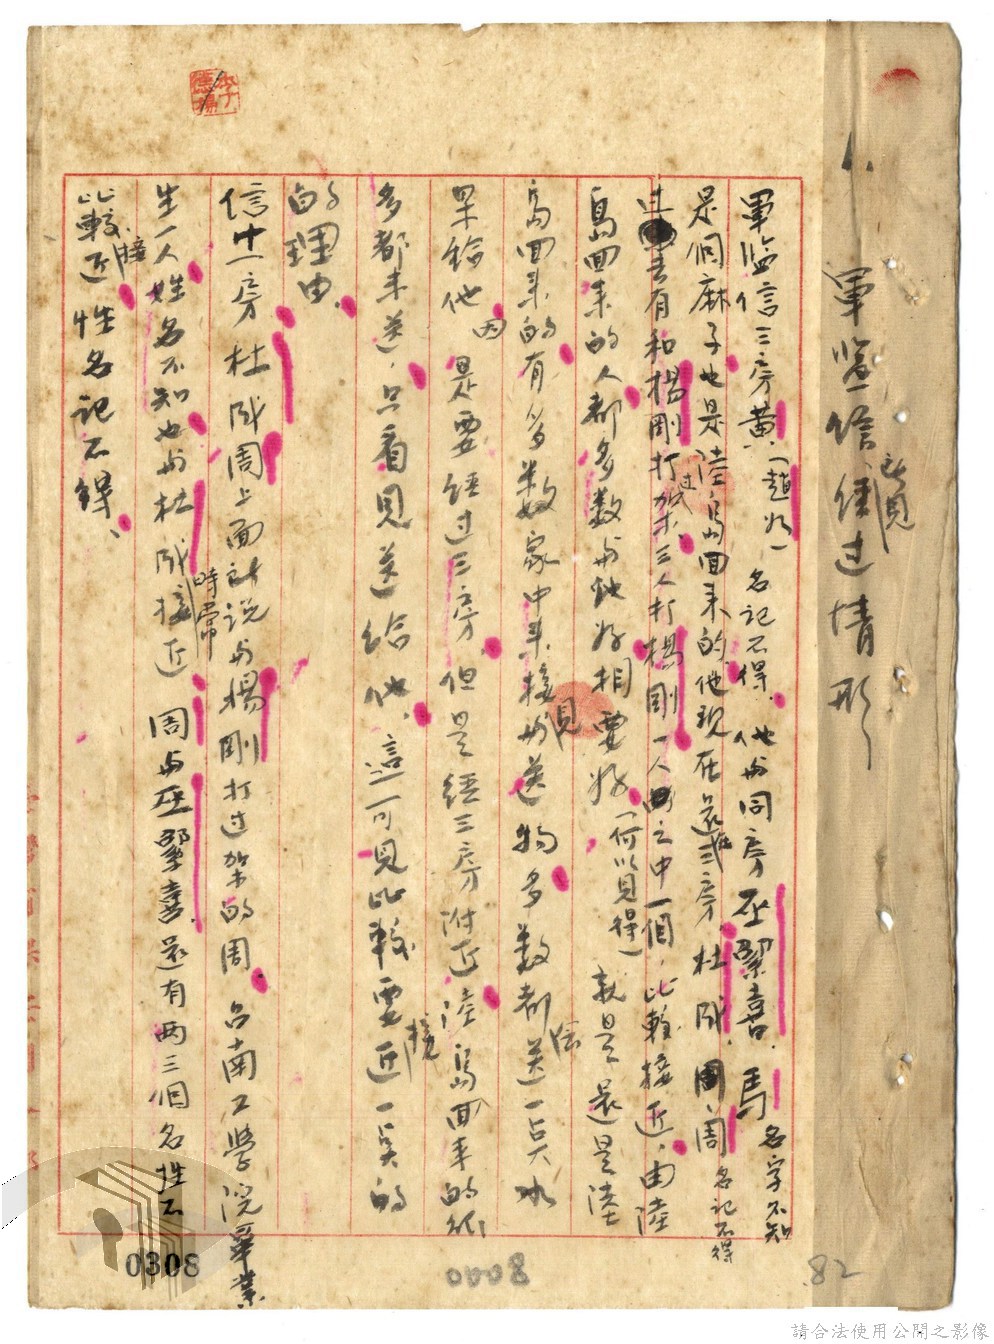 軍監信經過情形
所見
軍監信三房黃(趙九)名記不得.他与同房巫翠喜.馬名字不知
是個麻子也是陸島回來的他現在還在弍房.杜成.周周名記不得
過去有和楊剛打過架.三人打楊剛一人之中一個,比較接近,由陸
島回來的人都多数与他好相要好(何以見得)就是還是陸
島回來的有多数家中來接見送物多数都送一点水
果給他因是要經过三房.但是經三房附近陸島回來的
多都未送,只看見送給他.這一可見比較要接近一点的
的理由.
信十一房杜成周上面所說与楊剛打过架的周.台南工學院畢業
生一人姓名不知也与杜成時常接近周与巫翠喜還有两三個名姓不
比較接近姓名記不得、
0308
0008
82
請合法使用公開之影像